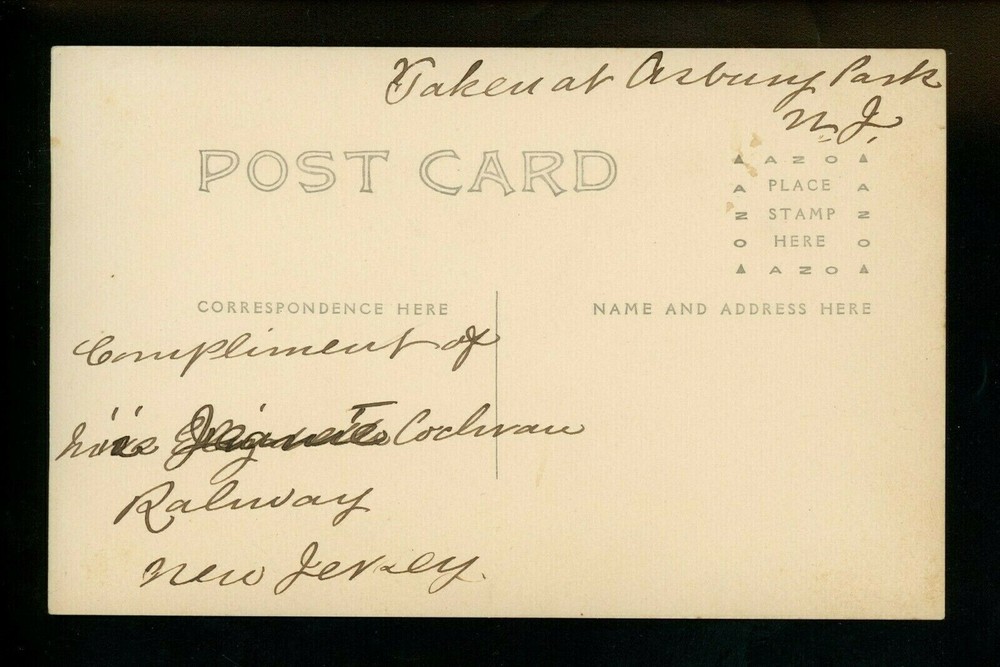 Taken at Asbury Park
N. J.
POST CARD
▲ A Z O ▲
A PLACE A
Z STAMP Z
O HERE O
▲ A Z O ▲
CORRESPONDENCE HERE
NAME AND ADDRESS HERE
Compliment of
Miss Cochran
Rahway
New Jersey.